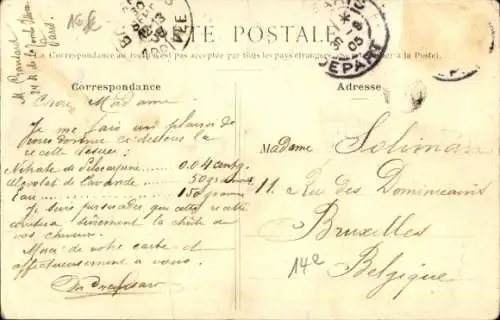 CARTE POSTALE
La Correspondance au recto n'est pas acceptée par tous les pays étrangers (Se renseigner à la Poste).
Correspondance
Chère Madame
Je me fais un plaisir de
vous donner ci-dessous la
recette
Nitrate de Pilocarpine 0.04 centg.
Alcoolat de Lavande 50 grammes
Eau 150 grammes
Je suis persuadée que cette recette
sûrement la chûte de
vos cheveux.
Merci de votre carte et
affectueusement à vous.
Adresse
Madame Soliman
11. Rue des Dominicains
Bruxelles
14e
Belgique
DEPART